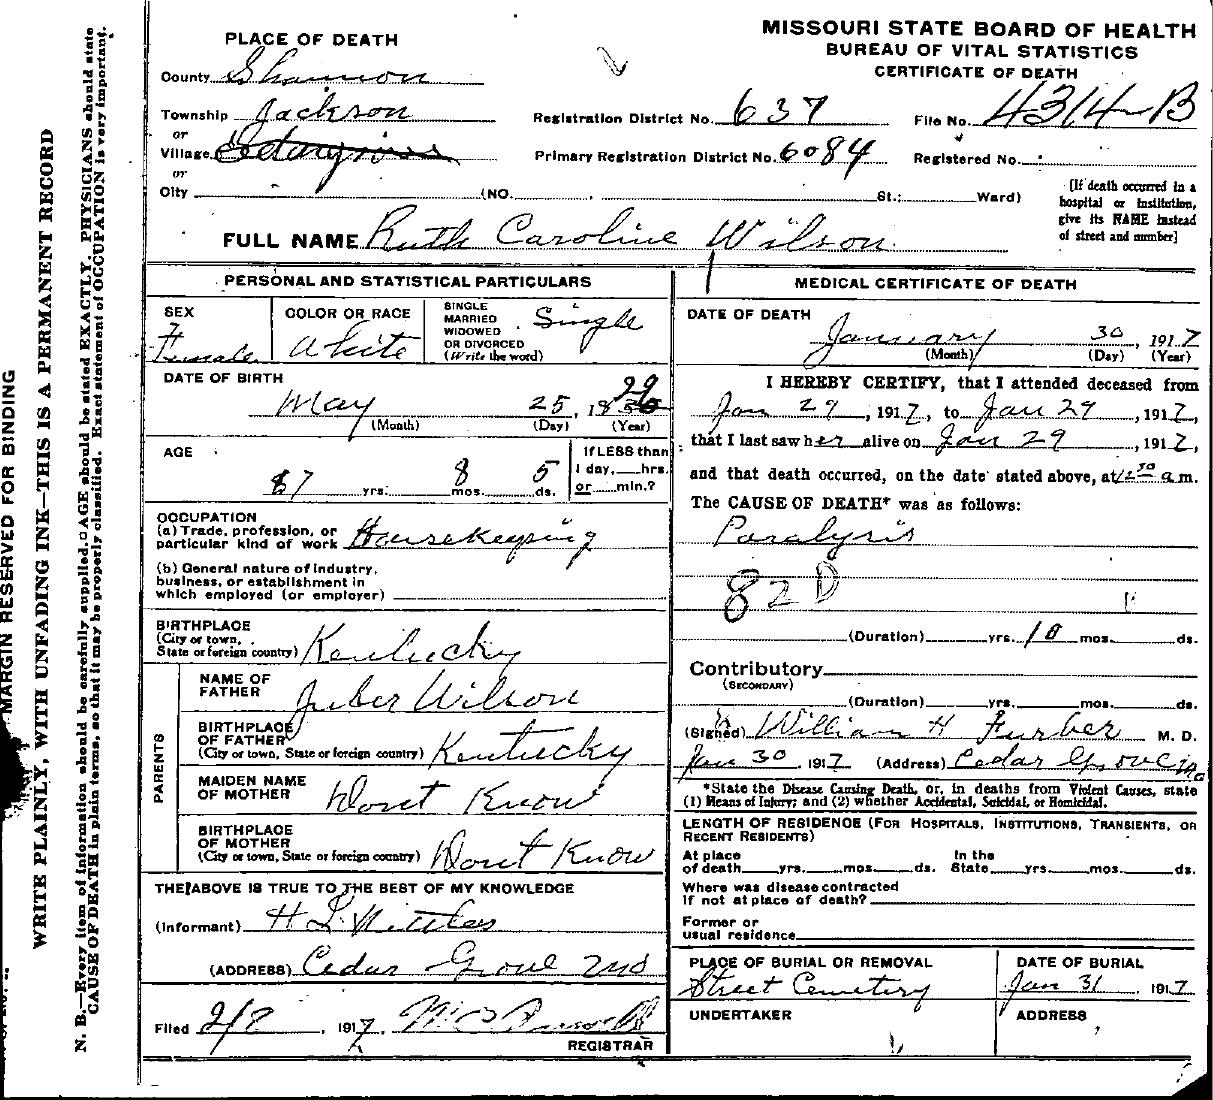 MISSOURI STATE BOARD OF HEALTH
BUREAU OF VITAL STATISTICS
CERTIFICATE OF DEATH
PLACE OF DEATH
County Shannon
Township Jackson
or
Village
or
City (NO. St.; Ward)
Registration District No. 637
File No. 4314-B
Primary Registration District No. 6084
Registered No.
[If death occurred in a
hospital or institution,
give its NAME instead
of street and number]
FULL NAME Ruth Caroline Wilson
PERSONAL AND STATISTICAL PARTICULARS
SEX
Female
COLOR OR RACE
White
SINGLE
MARRIED
WIDOWED
OR DIVORCED
(Write the word)
Single
DATE OF BIRTH
May 25, 1829
(Month) (Day) (Year)
AGE
87 yrs. 8 mos. 5 ds.
If LESS than
1 day, hrs.
or min.?
OCCUPATION
(a) Trade, profession, or
particular kind of work Housekeeping
(b) General nature of industry,
business, or establishment in
which employed (or employer)
BIRTHPLACE
(City or town,
State or foreign country) Kentucky
PARENTS
NAME OF
FATHER Juber Wilson
BIRTHPLACE
OF FATHER
(City or town, State or foreign country) Kentucky
MAIDEN NAME
OF MOTHER Dont Know
BIRTHPLACE
OF MOTHER
(City or town, State or foreign country) Dont Know
THE ABOVE IS TRUE TO THE BEST OF MY KNOWLEDGE
(Informant) H
(ADDRESS) Cedar Grove
Filed 2/2, 1917,
REGISTRAR
MEDICAL CERTIFICATE OF DEATH
DATE OF DEATH
January 30, 1917
(Month) (Day) (Year)
I HEREBY CERTIFY, that I attended deceased from
Jan 29, 1917, to Jan 29, 1917,
that I last saw her alive on Jan 29, 1917,
and that death occurred, on the date stated above, at 12 30 a.m.
The CAUSE OF DEATH* was as follows:
Paralysis
82 D
(Duration) yrs. 10 mos. ds.
Contributory
(SECONDARY)
(Duration) yrs. mos. ds.
(Signed) William H Furber M. D.
Jan 30, 1917 (Address) Cedar Grove Mo
*State the Disease Causing Death, or, in deaths from Violent Causes, state
(1) Means of Injury; and (2) whether Accidental, Suicidal, or Homicidal.
LENGTH OF RESIDENCE (FOR HOSPITALS, INSTITUTIONS, TRANSIENTS, OR
RECENT RESIDENTS)
At place
of death yrs. mos. ds.
In the
State yrs. mos. ds.
Where was disease contracted
if not at place of death?
Former or
usual residence
PLACE OF BURIAL OR REMOVAL
Street Cemetery
DATE OF BURIAL
Jan 31, 1917
UNDERTAKER
ADDRESS
MARGIN RESERVED FOR BINDING
WRITE PLAINLY, WITH UNFADING INK—THIS IS A PERMANENT RECORD
N. B.—Every item of information should be carefully supplied. AGE should be stated EXACTLY. PHYSICIANS should state
CAUSE OF DEATH in plain terms, so that it may be properly classified. Exact statement of OCCUPATION is very important.